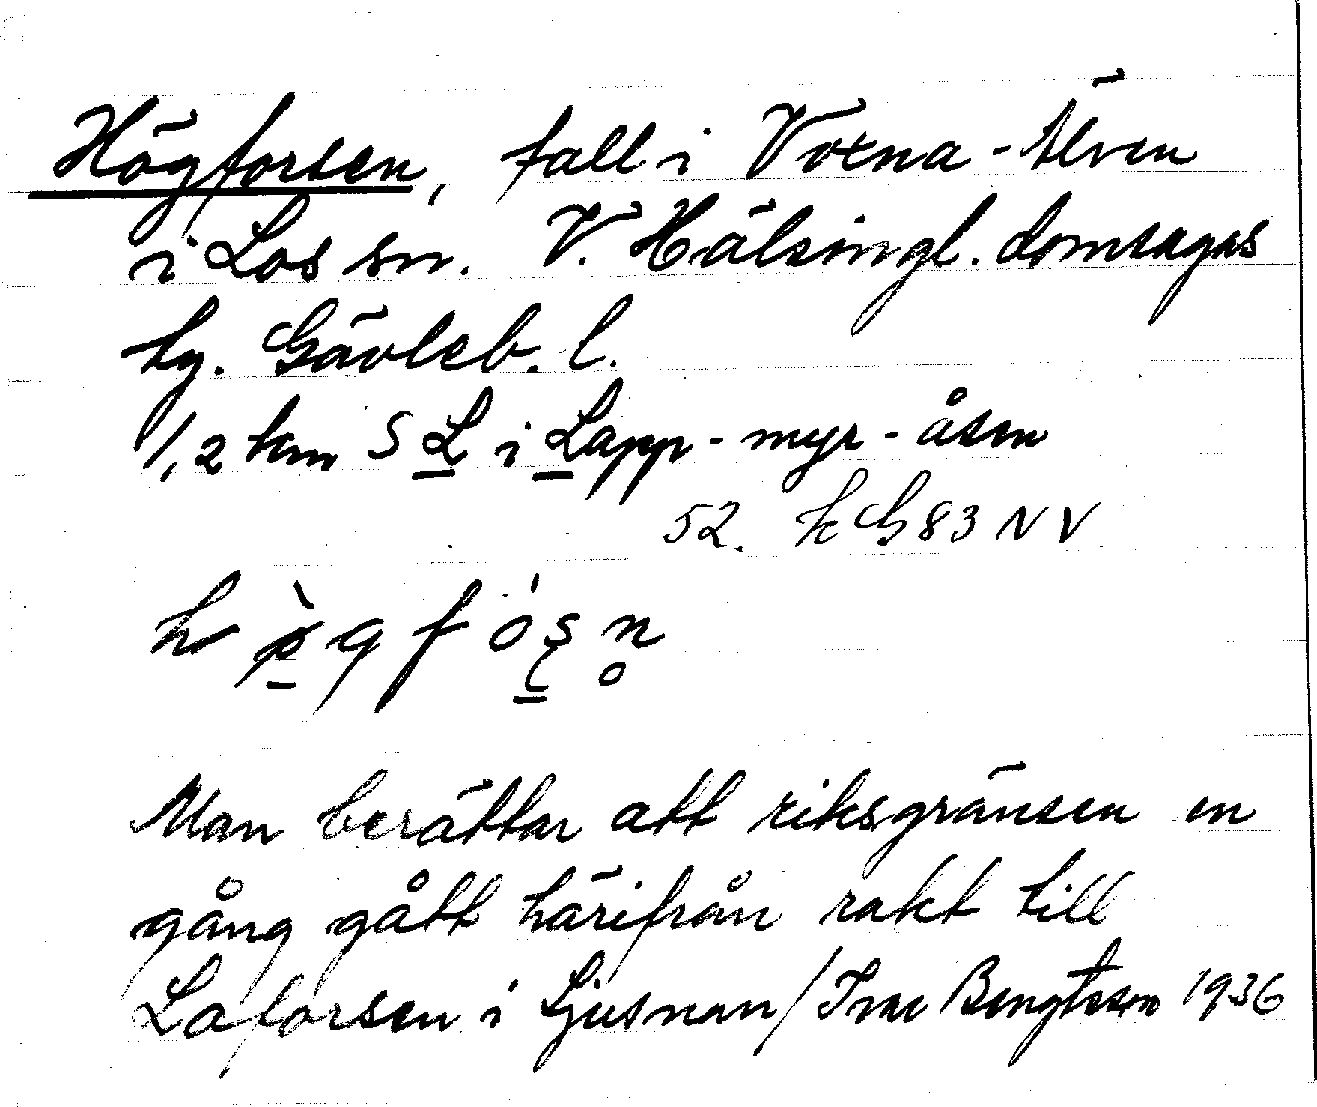 Högforsen, fall i Voxna-Älven
i Los sn. V. Hälsingl. domsagas
tg. Gävleb. l.
1,2 km S L i Lapp-myr-åsen
52. k G 83 NV
Man berättar att riksgränsen en
gång gått härifrån rakt till
Laforsen i Ljusnan/Ivar Bengtsson 1936